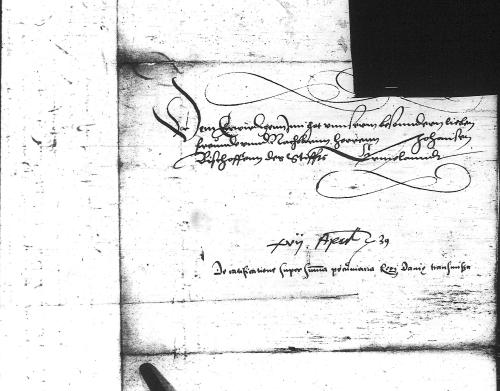 Dem Erwirdigenn Inn got vnnserm besonndern lieben
freundt vnnd Nachbaurn herrenn Johansen
Bischoffenn der Stiffts Ermelanndt
xvij Aprilis 39
De ratificatione super summa pecuniaria Regi Danie transmissa